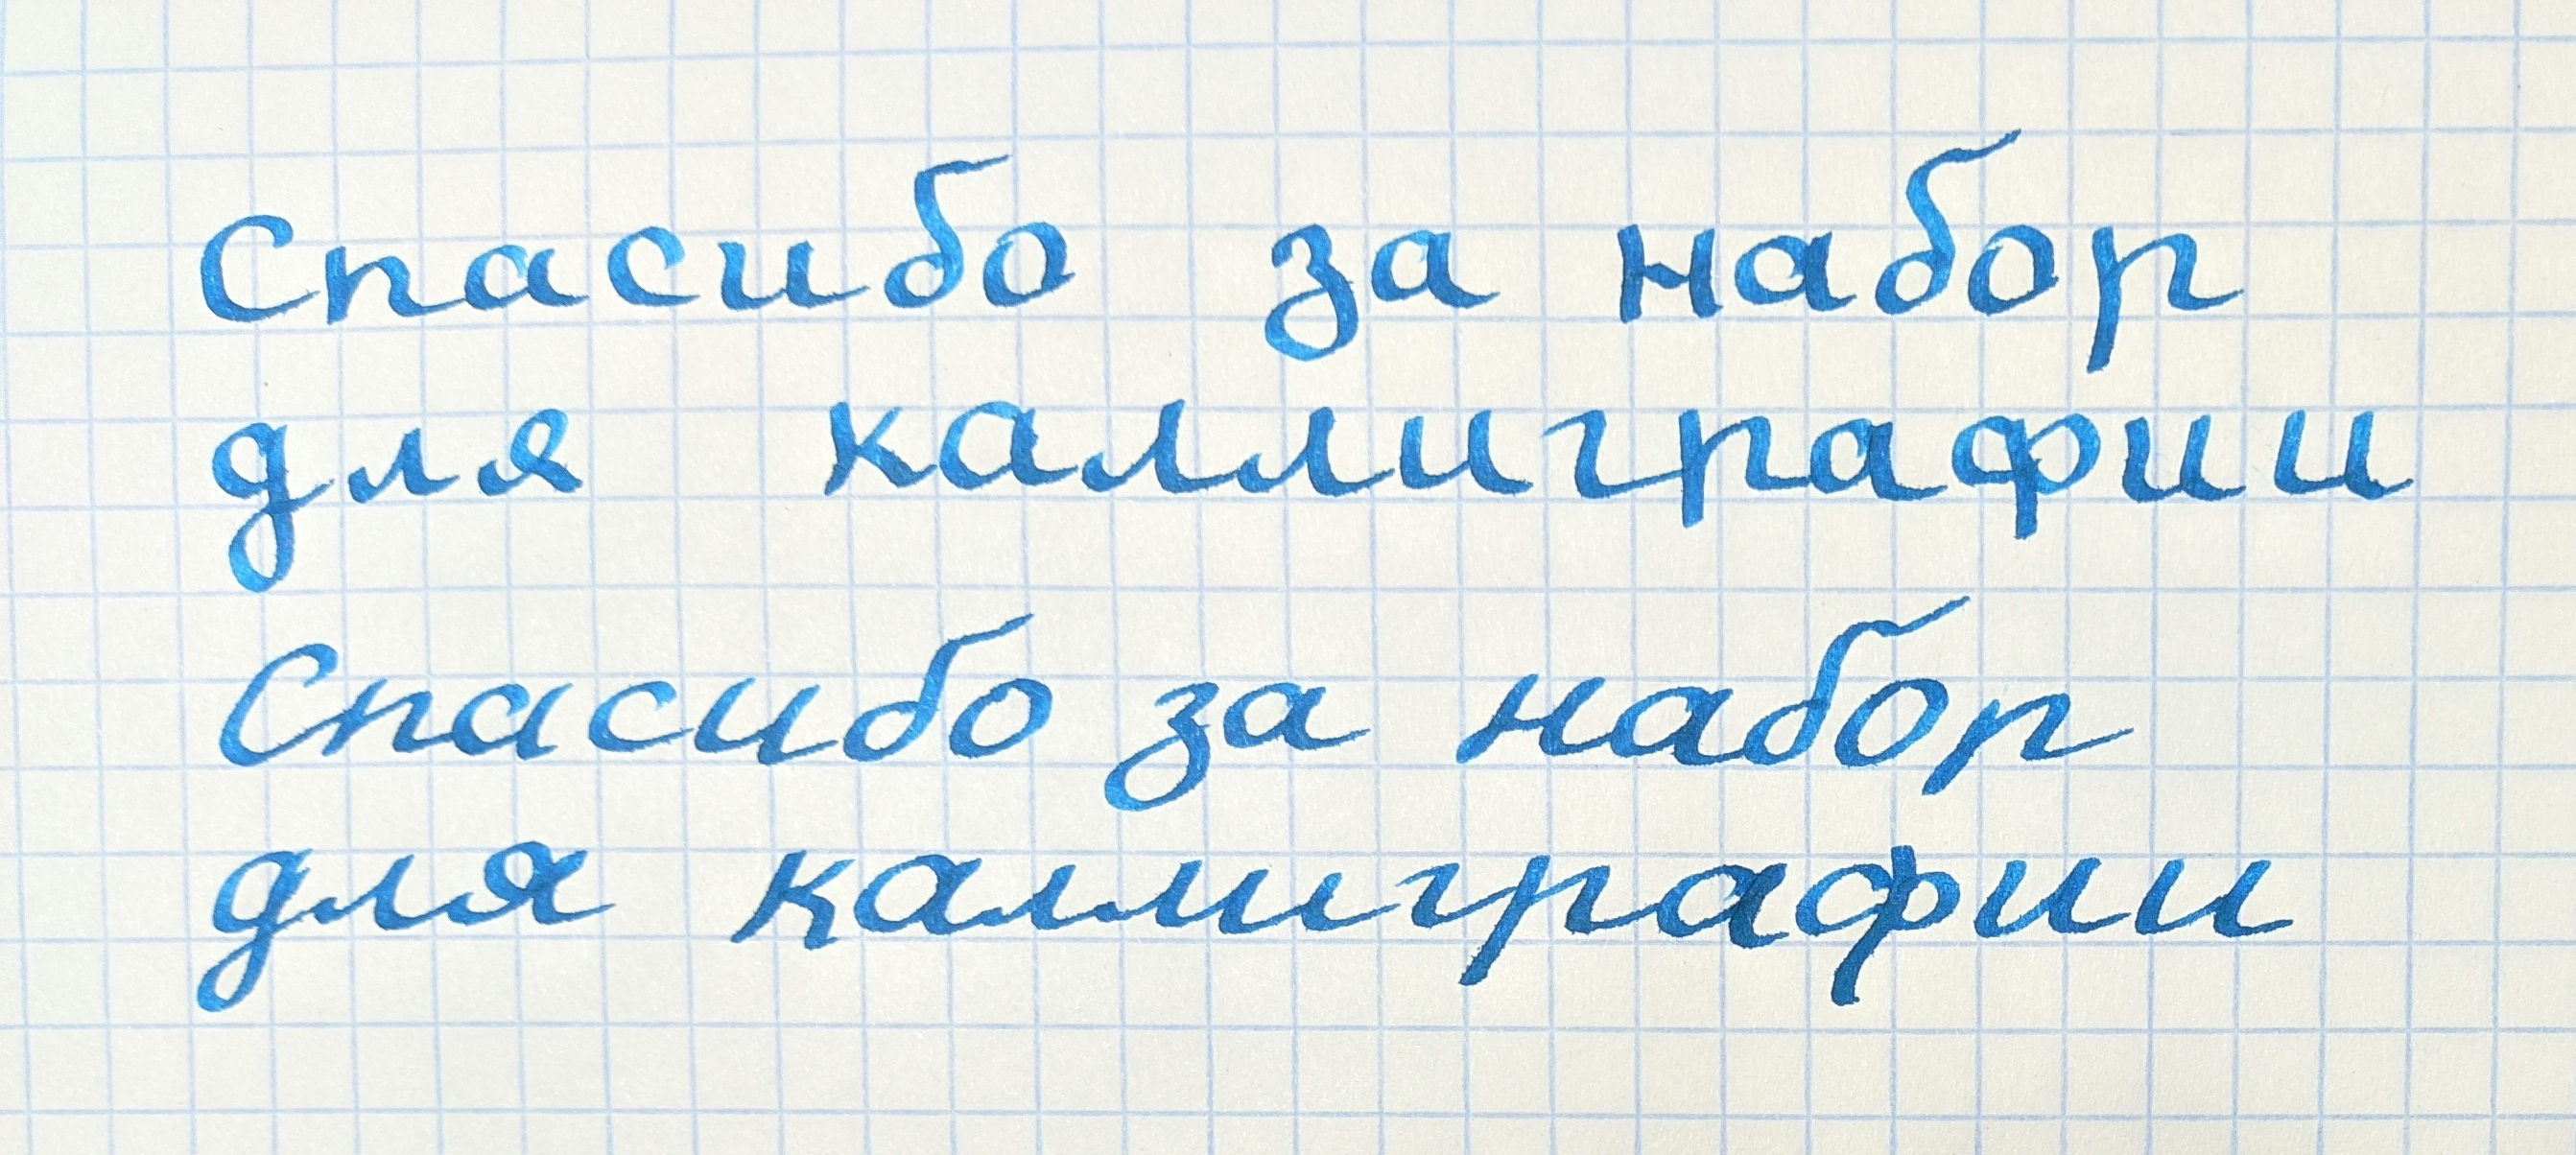 Спасибо за набор
для каллиграфии
Спасибо за набор
для каллиграфии